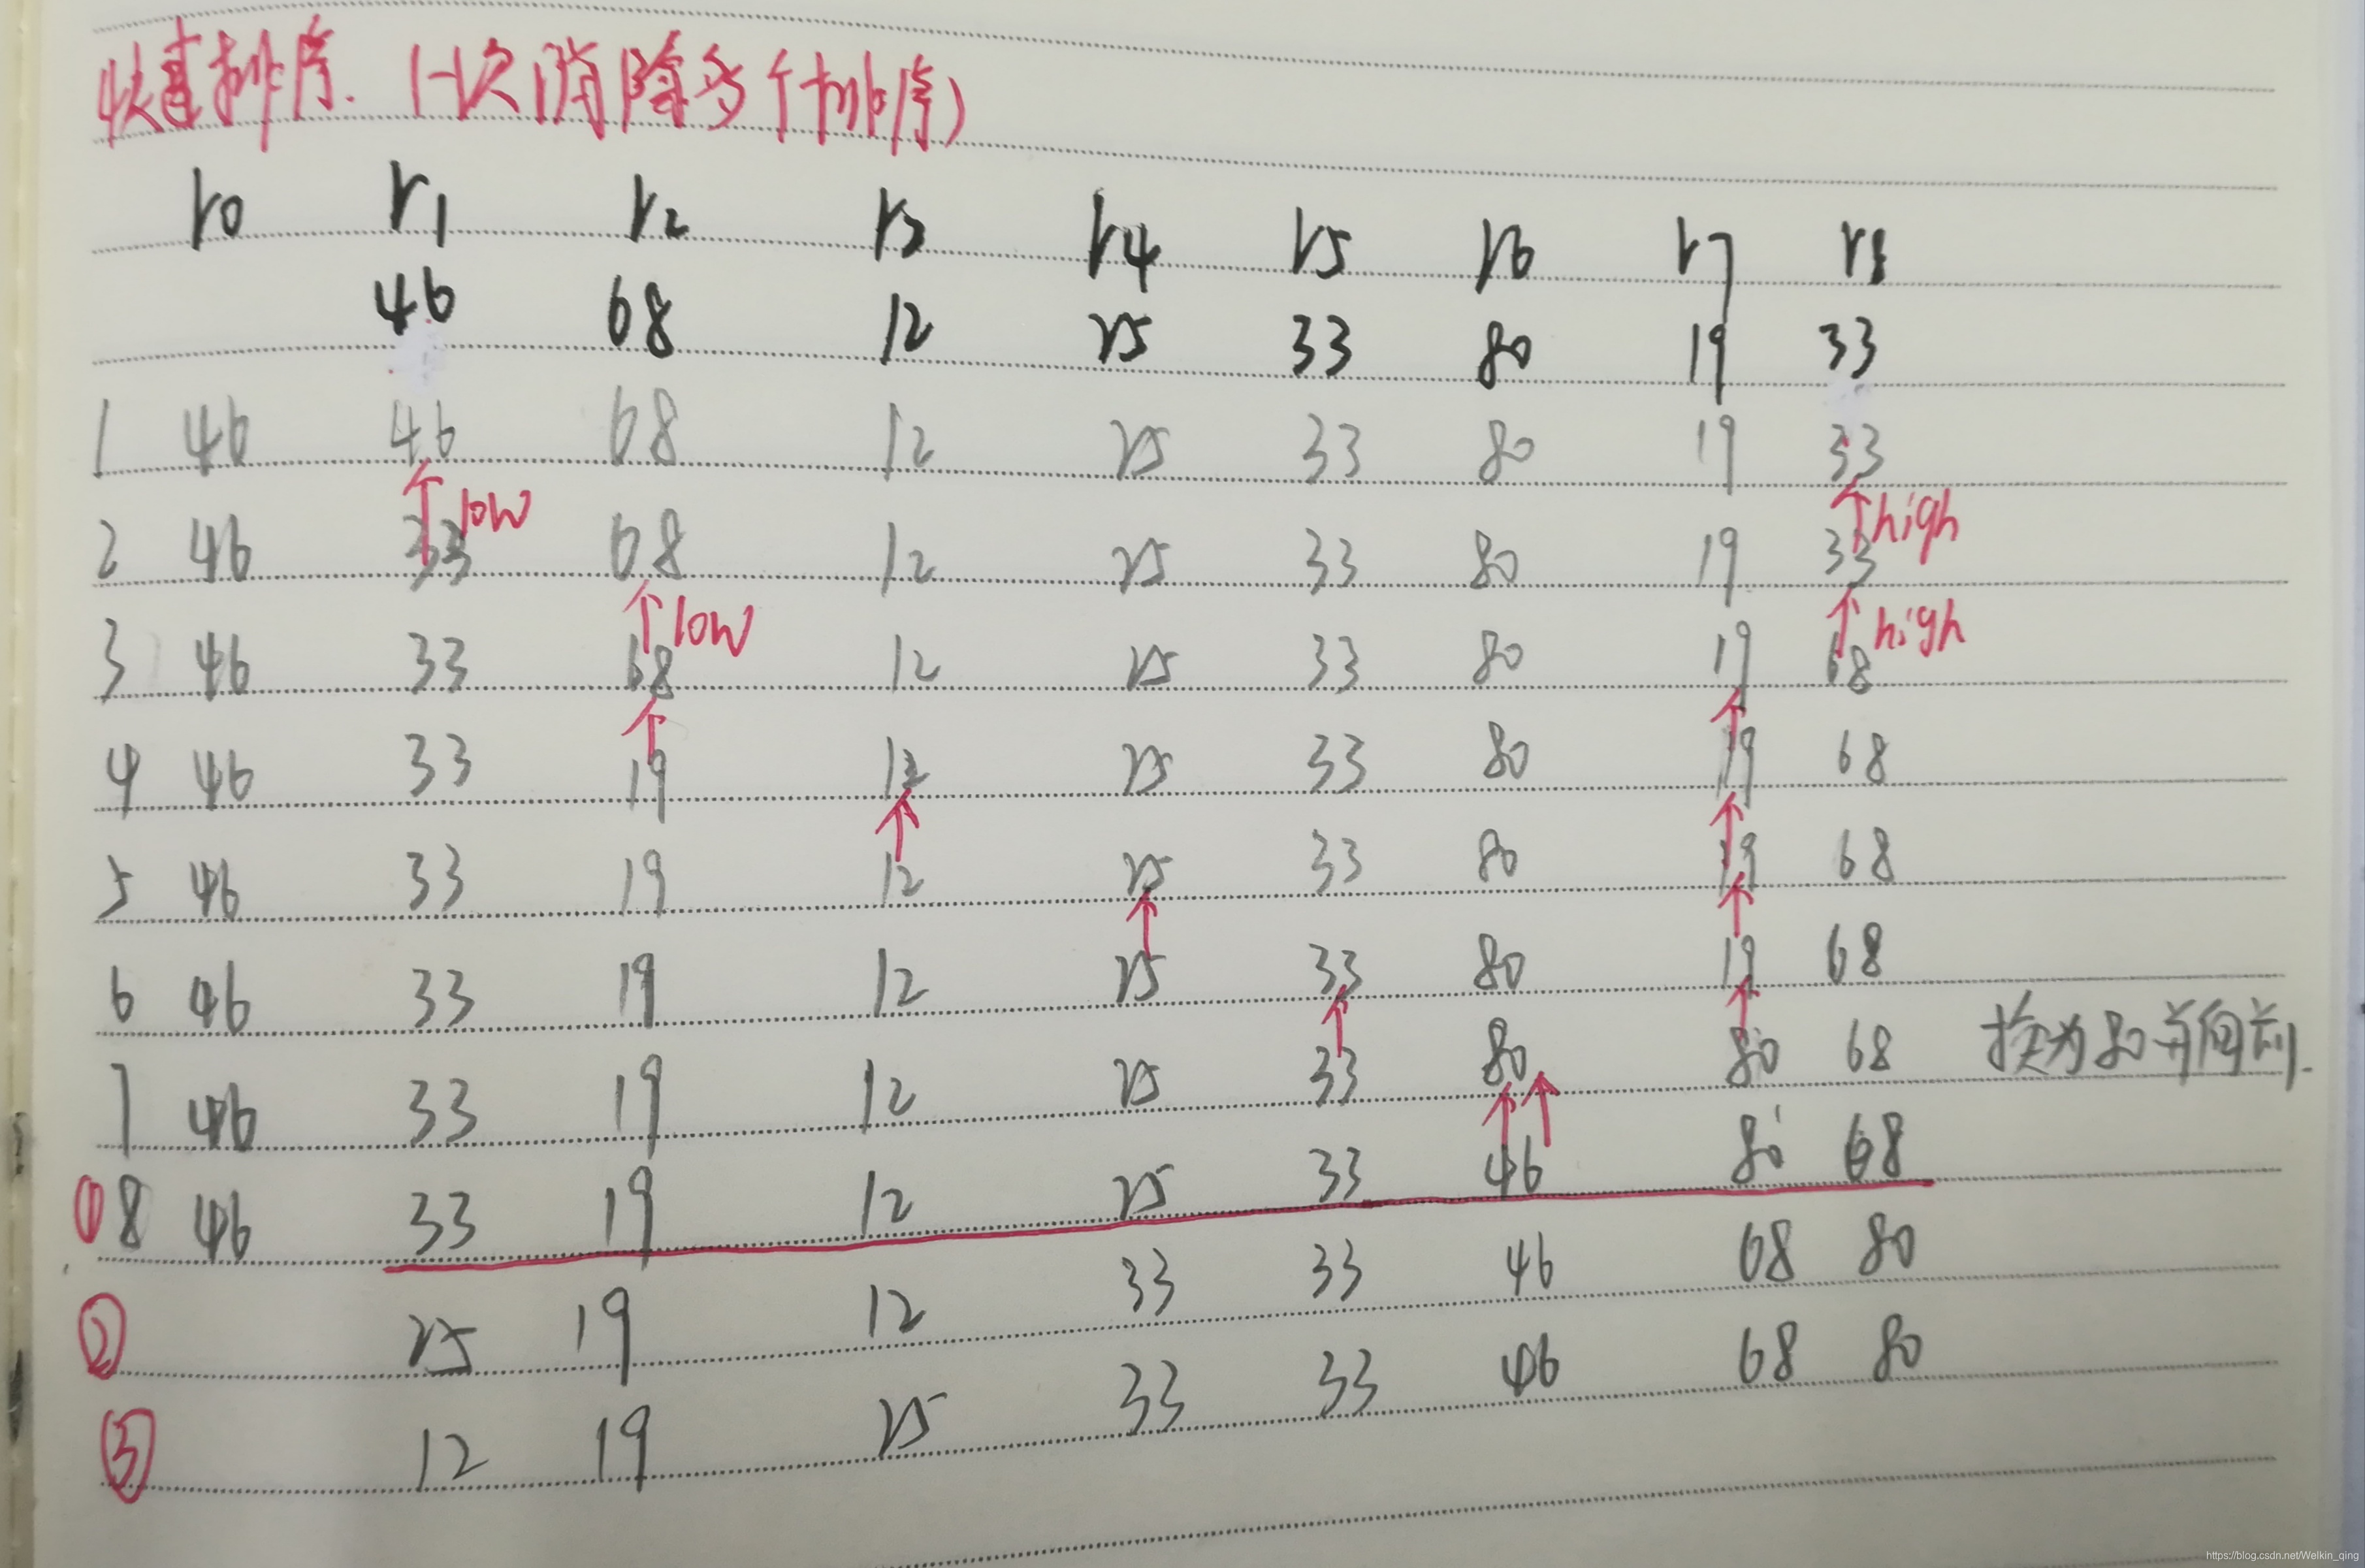 快速排序. (一次消除多个排序)
r0 r1 r2 r3 r4 r5 r6 r7 r8
46 68 12 25 33 80 19 33
1 46 46 68 12 25 33 80 19 33
↑low ↑high
2 46 33 68 12 25 33 80 19 33
↑low ↑high
3 46 33 68 12 25 33 80 19 68
↑ ↑
4 46 33 19 12 25 33 80 19 68
↑ ↑
5 46 33 19 12 25 33 80 19 68
↑ ↑
6 46 33 19 12 25 33 80 19 68
↑ ↑
7 46 33 19 12 25 33 80 80 68 换为80并向前.
↑↑
① 8 46 33 19 12 25 33 46 80 68
② 25 19 12 33 33 46 68 80
③ 12 19 25 33 33 46 68 80
https://blog.csdn.net/Welkin_qing